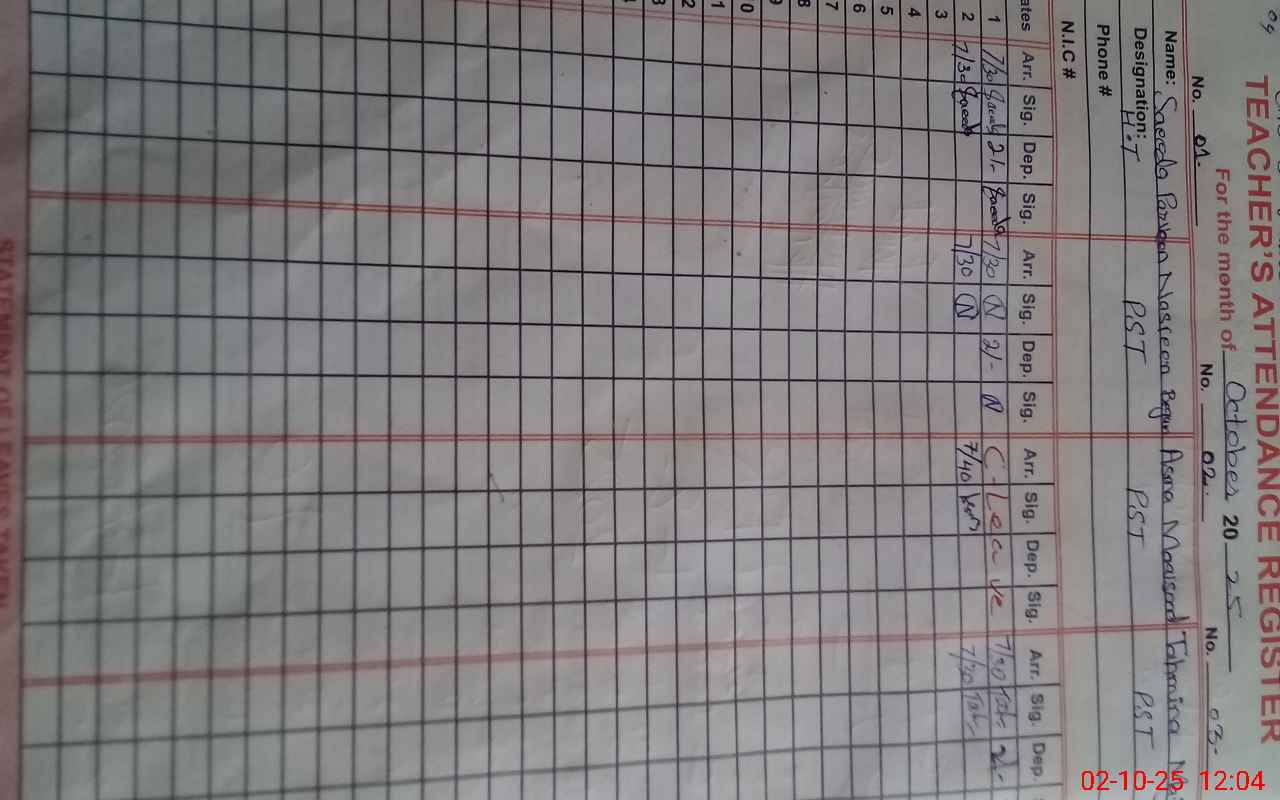 09
TEACHER'S ATTENDANCE REGISTER
For the month of October 2025
No. 01. No. 02. No. 03-
Name: Saeeda Parveen Nasreen Begum Asma Maqsood Tahmina
Designation: H.T PST PST PST
Phone #
N.I.C #
ates Arr. Sig. Dep. Sig. Arr. Sig. Dep. Sig. Arr. Sig. Dep. Sig. Arr. Sig. Dep.
1 7/30 Saeeda 2/- Saeeda 7/30 N 2/- N C-Leave 7/30 Tah 2/-
2 7/30 Saeeda 7/30 N 7/40 7/30 Tah
3
4
5
6
7
8
9
0
1
2
3
STATEMENT OF LEAVES TAKEN
02-10-25 12:04